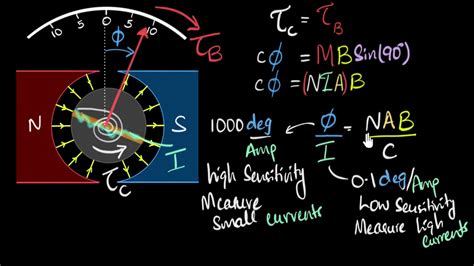 10 5 0 5 10
ϕ
τ_B
N S
I
τ_C
τ_C = τ_B
Cϕ = MB Sin(90°)
Cϕ = (NIA)B
1000 deg/Amp ← ϕ/I = NAB/C
High Sensitivity
Measure
Small currents
0.1 deg/Amp
Low Sensitivity
Measure high
currents